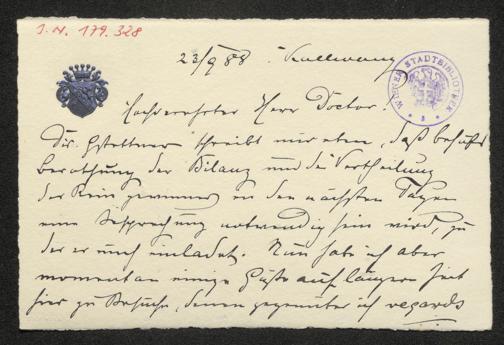 I.N. 179.328
23/9 88 Kallwang
WIENER STADTBIBLIOTHEK
Hochverehrter Herr Doctor.
Dir. Gstettner schreibt mir eben, daß behufs
Berathung der Bilanz und der Vertheilung
des Reingewinnes in den nächsten Tagen
eine Besprechung notwendig sein wird, zu
der er mich einladet. Nun habe ich aber
momentan einige Gäste auf längere Zeit
hier zu Besuche, denen gegenüber ich regards